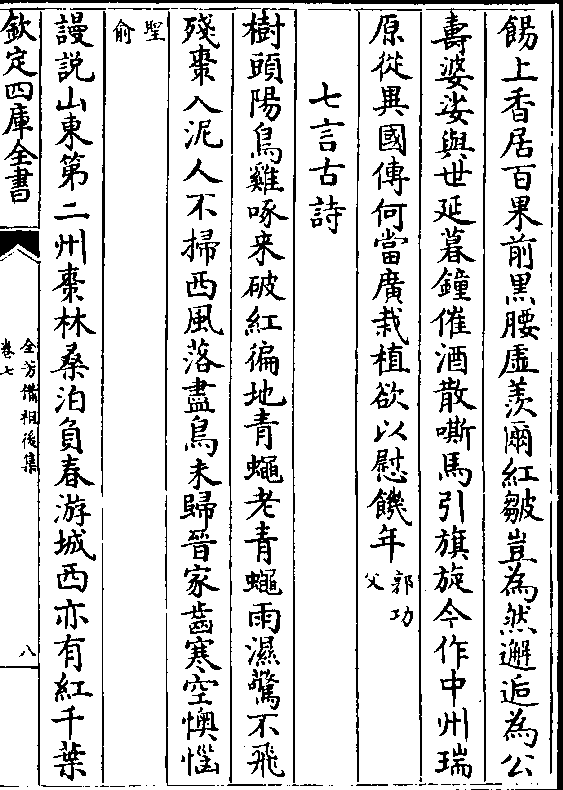 餳上香居百果前黑腰虛羨爾紅皺豈為然邂逅為公
壽婆娑與世延暮鐘催酒散嘶馬引旗旋今作中州瑞
原從異國傳何當廣栽植欲以慰饑年郭功父
七言古詩
樹頭陽鳥雞啄来破紅徧地青蠅老青蠅雨濕驚不飛
殘棗入泥人不掃西風落盡鳥未歸晉家齒寒空懊惱
聖俞
謾説山東第二州棗林桑泊負春游城西亦有紅千葉
欽定四庫全書
全芳備祖後集
卷七
八